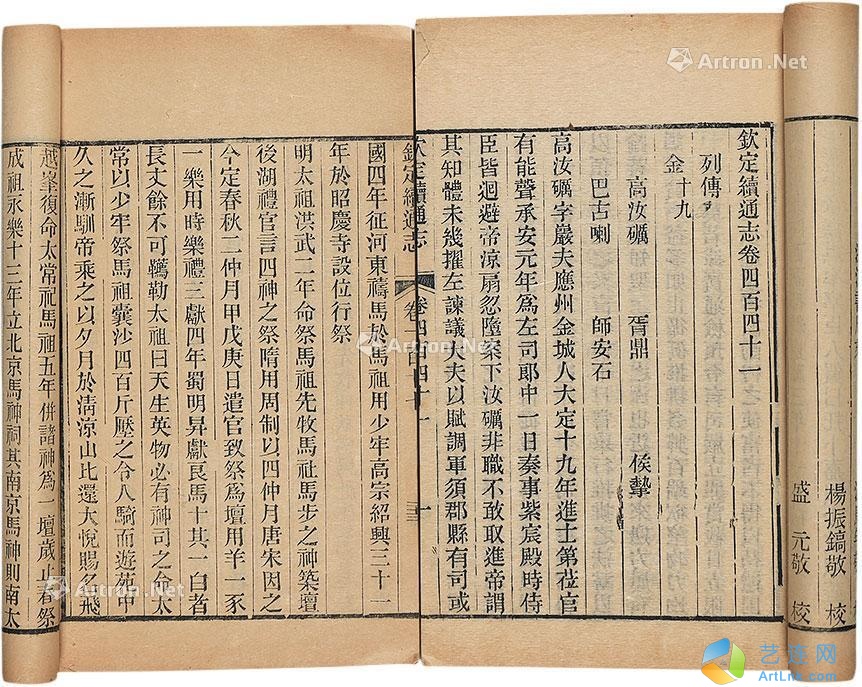 楊振鎬敬校
盛元敬校
欽定續通志卷四百四十一
列傳
金十九
高汝礪
胥鼎
侯摯
巴古喇
師安石
高汝礪字巖夫應州金城人大定十九年進士第莅官
有能聲承安元年爲左司郎中一日奏事紫宸殿時侍
臣皆迴避帝涼扇忽墮案下汝礪非職不敢取進帝謂
其知體未幾擢左諫議大夫以賦調軍須郡縣有司或
欽定續通志 卷四百四十一 一
欽定續通志
國四年征河東禱馬於馬祖用少牢高宗紹興三十一
年於昭慶寺設位行祭
明太祖洪武二年命祭馬祖先牧馬社馬步之神築壇
後湖禮官言四神之祭隋用周制以四仲月唐宋因之
今定春秋二仲月甲戊庚日遣官致祭爲壇用羊一豕
一樂用時樂禮三獻四年蜀明昇獻良馬十其一白者
長丈餘不可鞲勒太祖曰天生英物必有神司之命太
常以少牢祭馬祖囊沙四百斤壓之令人騎而遊苑中
久之漸馴帝乘之以夕月於淸涼山比還大悅賜名飛
越峯復命太常祀馬祖五年併諸神爲一壇歲止春祭
成祖永樂十三年立北京馬神祠其南京馬神則南太
Artron.Net
Artron.Net
Artron.Net
Artron.Net
Artron.Net
艺连网
ArtLnk.Com